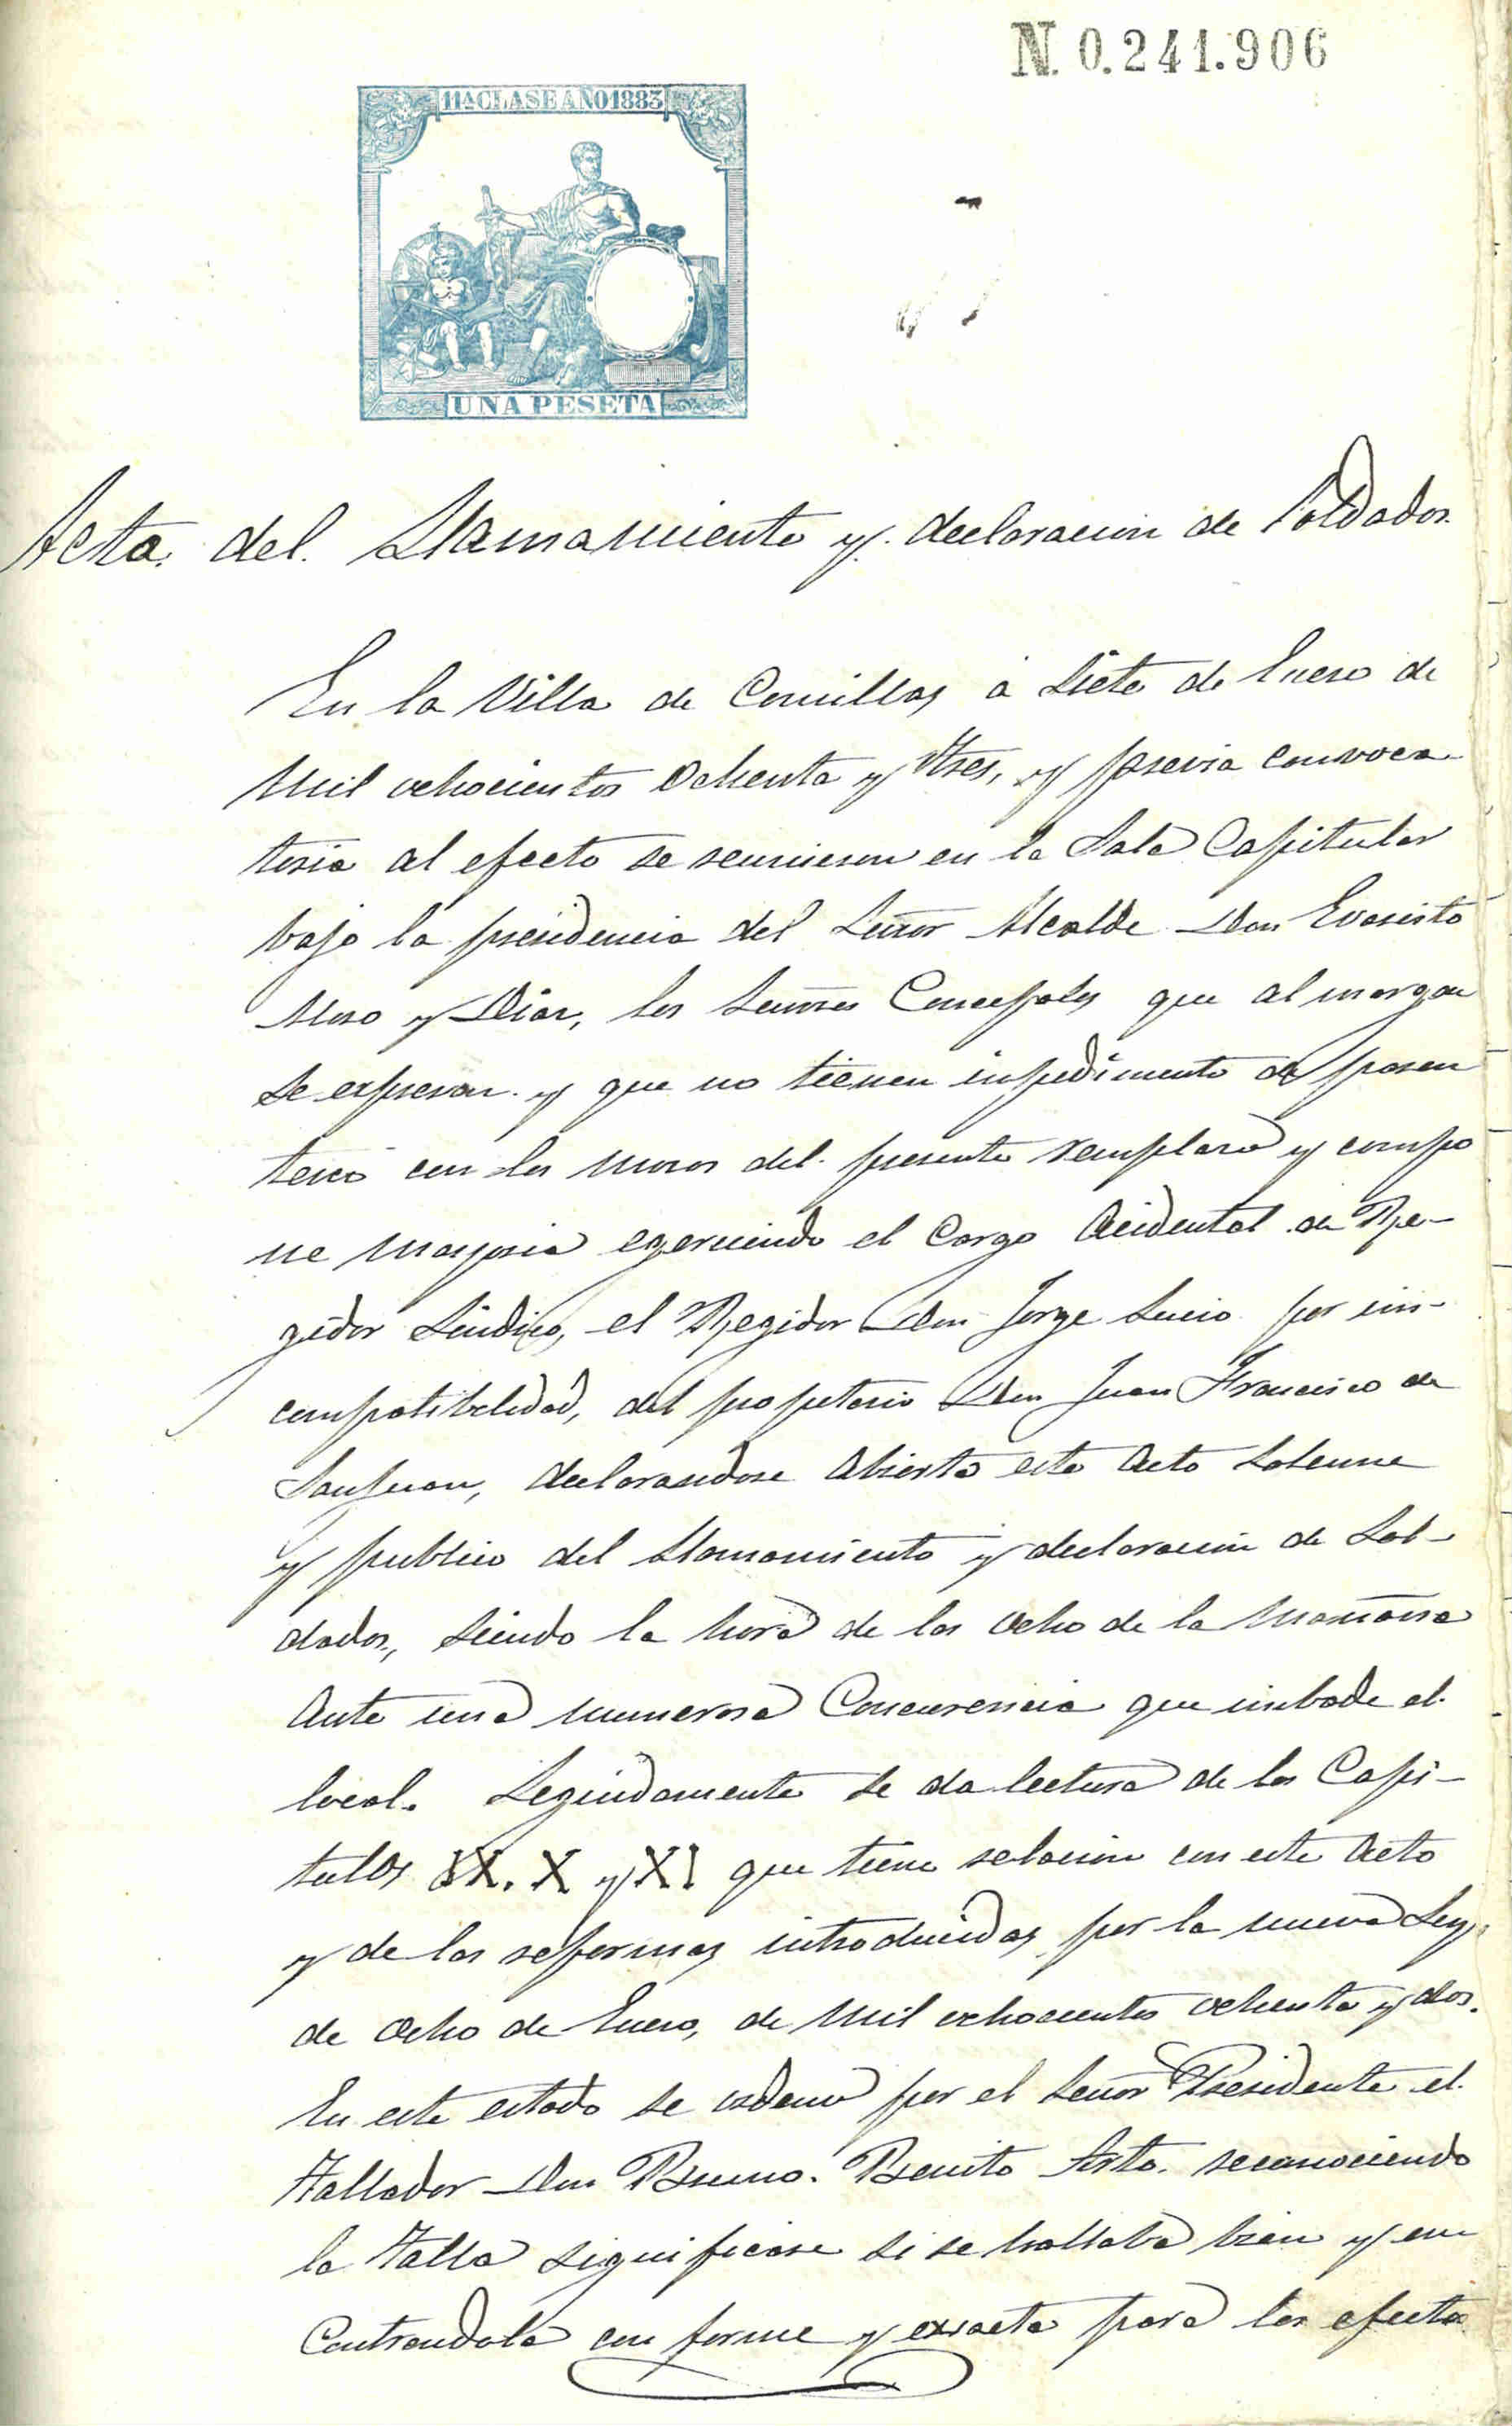 N. 0.241.906
11ª CLASE AÑO 1883
UNA PESETA
Acta del Llamamiento y declaracion de Soldados
En la Villa de Comillas á Siete de Enero de
Mil ochocientos Ochenta y tres, y previa convoca-
toria al efecto se reunieron en la Sala Capitular
bajo la presidencia del Señor Alcalde Don Evaristo
y Diaz, los Señores Concejales que al margen
Se expresan y que no tienen impedimento de paren
tesco con los mozos del presente remplazo y compo
ne mayoria egerciendo el Cargo Acidental de Re-
gidor Sindico, el Regidor Don Jorge Lucio por in-
compatibilidad, del propetario Don Juan Francisco de
Sanjuan, declarandose Abierto este Acto Solenne
y publico del Llamamiento y declaracion de Sol-
dados, Siendo la hora de las Ocho de la Mañana
Ante una numerosa Concurencia que imbade el
local. Seguidamente Se da lectura de los Capi-
tulos IX. X y XI que tiene relacion con este Acto
y de las reformas introducidas por la nueva Ley
de Ocho de Enero, de Mil ochocientos ochenta y dos.
En este estado se ordenó por el Señor Presidente el
Tallador Don Bruno Benito reconociendo
la Talla significase si se hallaba bien y en
Contrandola con forme y exsacta para los efectos